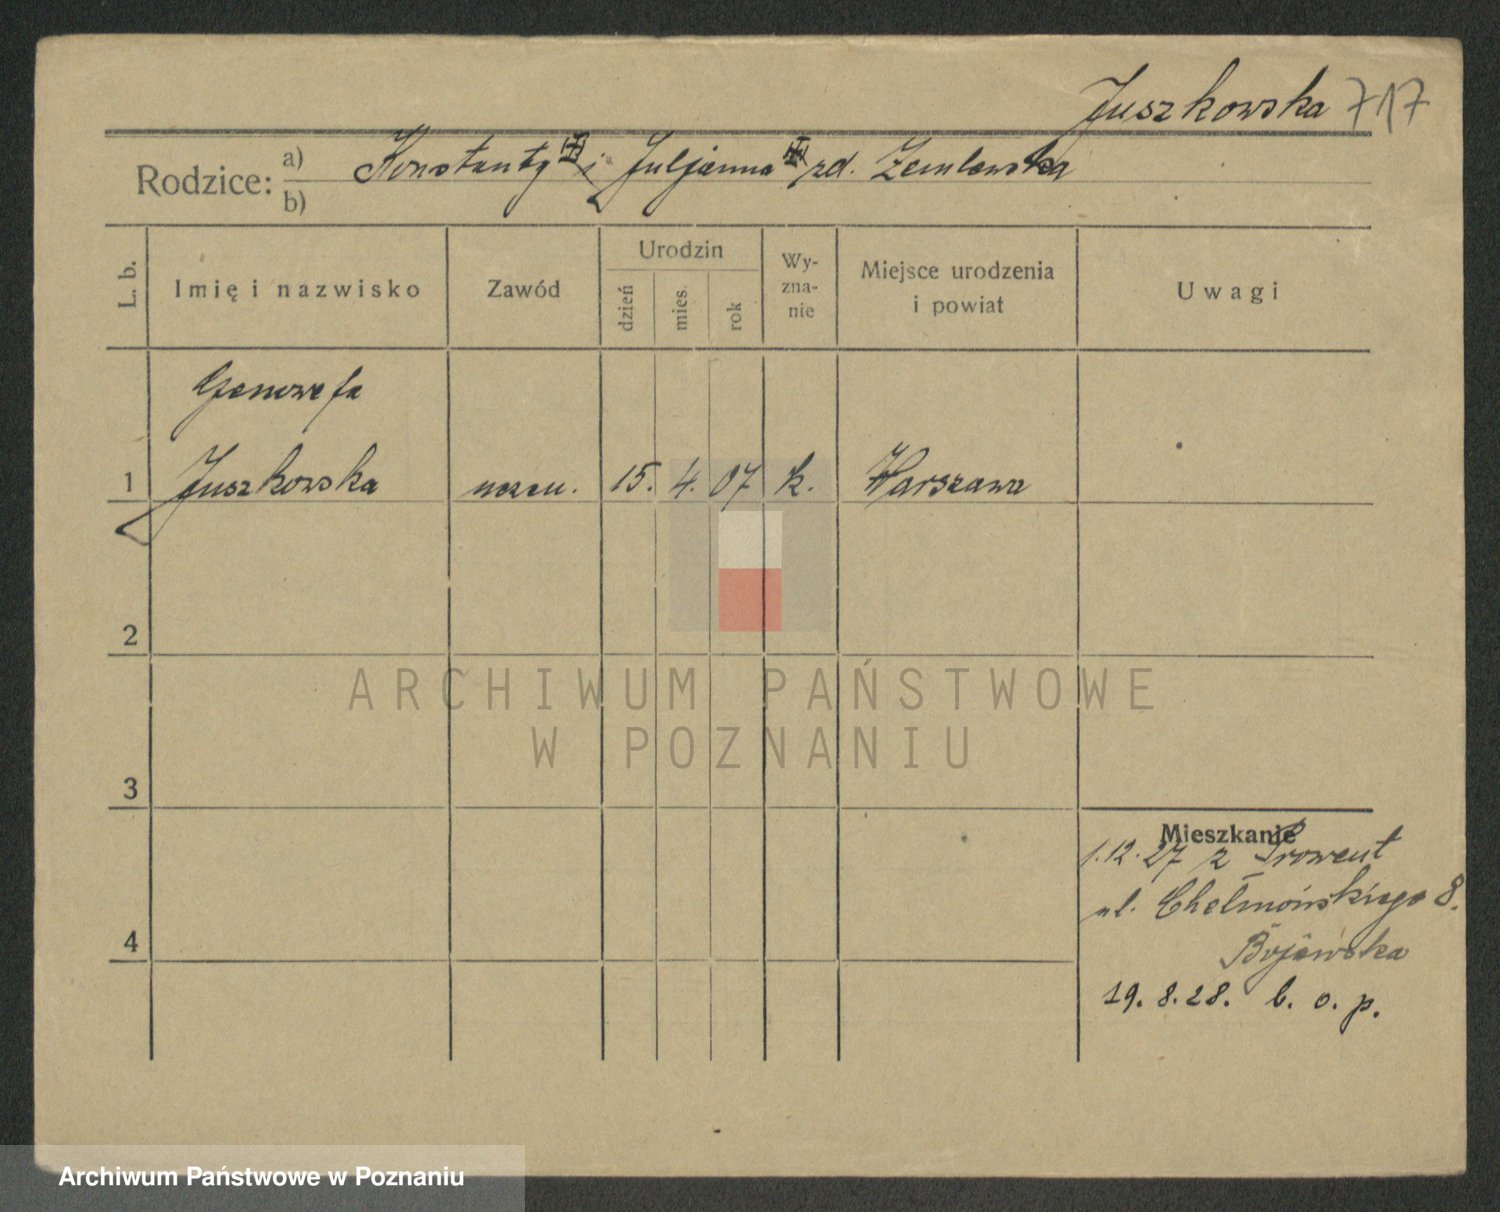 Juszkowska 717
Rodzice: a) Konstanty i Juljanna zd. Zemlewska
b)
L. b. Imię i nazwisko Zawód Urodzin dzień mies. rok Wyzna-nie Miejsce urodzenia i powiat Uwagi
Genowefa
1 Juszkowska uczen. 15. 4. 07 k. Warszawa
2
3
4
Mieszkanie
1.12.27 z Prowent
ul. Chełmońskiego 8.
Bojewska
19. 8. 28. b. o. p.
ARCHIWUM PAŃSTWOWE
W POZNANIU
Archiwum Państwowe w Poznaniu